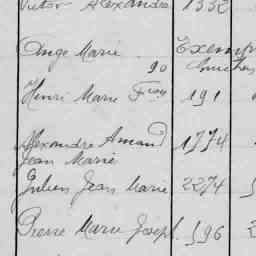 Victor Alexandre 1332
Ange Marie Exemp
90
Henri Marie Frois 191
Alexandre Amand 1774
Jean Marie
Julien Jean Marie 2274
Pierre Marie Joseph 596